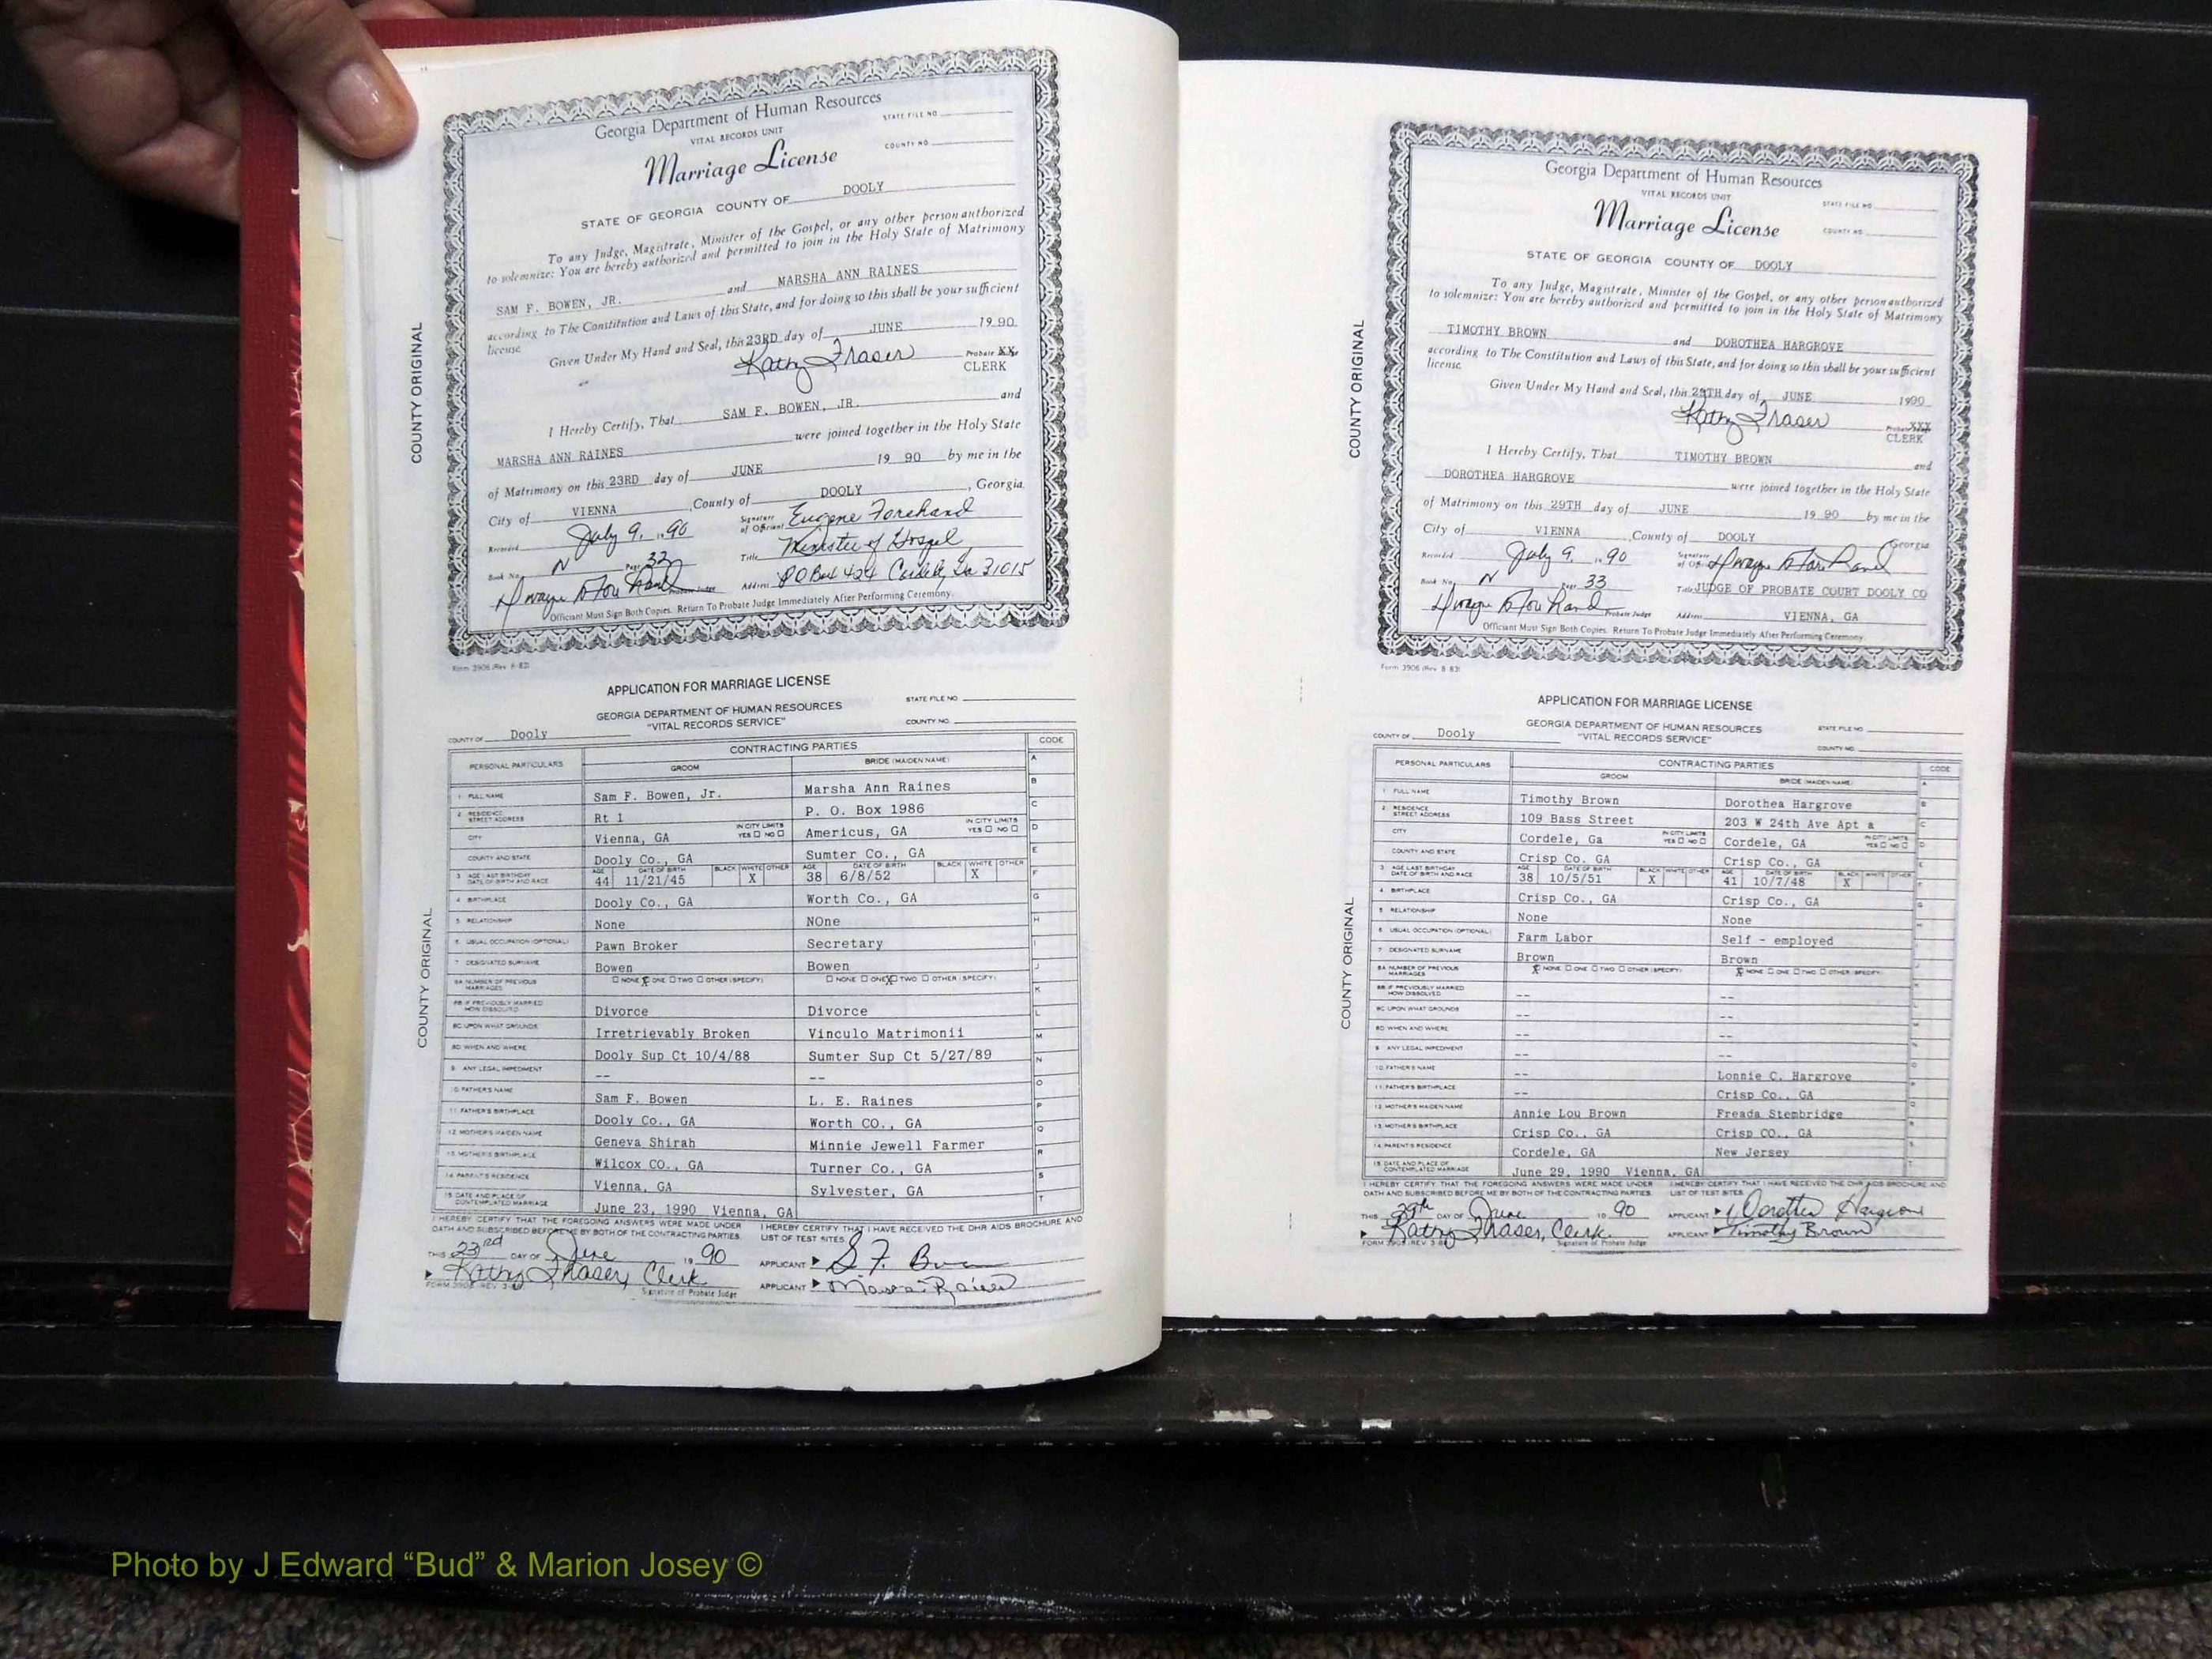 Georgia Department of Human Resources
VITAL RECORDS UNIT
STATE FILE NO.
COUNTY NO.
Marriage License
STATE OF GEORGIA COUNTY OF DOOLY
To any Judge, Magistrate, Minister of the Gospel, or any other person authorized
to solemnize: You are hereby authorized and permitted to join in the Holy State of Matrimony
SAM F. BOWEN, JR. and MARSHA ANN RAINES
according to The Constitution and Laws of this State, and for doing so this shall be your sufficient
license.
Given Under My Hand and Seal, this 23RD day of JUNE 19 90
Kathy Fraser Probate XX
CLERK
I Hereby Certify, That SAM F. BOWEN, JR. and
MARSHA ANN RAINES were joined together in the Holy State
of Matrimony on this 23RD day of JUNE 19 90 by me in the
City of VIENNA, County of DOOLY, Georgia
Recorded July 9, 1990 Signature of Officiant Eugene Forehand
Book No. N Page 32 Title Minister of Gospel
Probate Judge Address PO Box 424 Cordele, Ga 31015
Officiant Must Sign Both Copies. Return To Probate Judge Immediately After Performing Ceremony.
COUNTY ORIGINAL
Form 3906 (Rev. 8-83)
APPLICATION FOR MARRIAGE LICENSE
GEORGIA DEPARTMENT OF HUMAN RESOURCES
"VITAL RECORDS SERVICE"
STATE FILE NO.
COUNTY NO.
COUNTY OF Dooly
PERSONAL PARTICULARS CONTRACTING PARTIES CODE
GROOM BRIDE (MAIDEN NAME)
1 FULL NAME Sam F. Bowen, Jr. Marsha Ann Raines
2 RESIDENCE STREET ADDRESS Rt 1 P. O. Box 1986
CITY Vienna, GA IN CITY LIMITS YES NO Americus, GA IN CITY LIMITS YES NO
COUNTY AND STATE Dooly Co., GA Sumter Co., GA
3 AGE LAST BIRTHDAY DATE OF BIRTH AND RACE AGE 44 DATE OF BIRTH 11/21/45 BLACK WHITE X OTHER AGE 38 DATE OF BIRTH 6/8/52 BLACK WHITE X OTHER
4 BIRTHPLACE Dooly Co., GA Worth Co., GA
5 RELATIONSHIP None NOne
6 USUAL OCCUPATION (OPTIONAL) Pawn Broker Secretary
7 DESIGNATED SURNAME Bowen Bowen
8A NUMBER OF PREVIOUS MARRIAGES NONE X ONE TWO OTHER (SPECIFY) NONE ONE X TWO OTHER (SPECIFY)
8B IF PREVIOUSLY MARRIED HOW DISSOLVED Divorce Divorce
8C UPON WHAT GROUNDS Irretrievably Broken Vinculo Matrimonii
8D WHEN AND WHERE Dooly Sup Ct 10/4/88 Sumter Sup Ct 5/27/89
9 ANY LEGAL IMPEDIMENT -- --
10 FATHER'S NAME Sam F. Bowen L. E. Raines
11 FATHER'S BIRTHPLACE Dooly Co., GA Worth CO., GA
12 MOTHER'S MAIDEN NAME Geneva Shirah Minnie Jewell Farmer
13 MOTHER'S BIRTHPLACE Wilcox CO., GA Turner Co., GA
14 PARENT'S RESIDENCE Vienna, GA Sylvester, GA
15 DATE AND PLACE OF CONTEMPLATED MARRIAGE June 23, 1990 Vienna, GA
A B C D E F G H I J K L M N O P Q R S T
COUNTY ORIGINAL
I HEREBY CERTIFY THAT THE FOREGOING ANSWERS WERE MADE UNDER
OATH AND SUBSCRIBED BEFORE ME BY BOTH OF THE CONTRACTING PARTIES.
I HEREBY CERTIFY THAT I HAVE RECEIVED THE DHR AIDS BROCHURE AND
LIST OF TEST SITES.
THIS 23rd DAY OF June 19 90 APPLICANT S. F. Bowen
Kathy Fraser, Clerk APPLICANT Marsha Raines
Signature of Probate Judge
Georgia Department of Human Resources
VITAL RECORDS UNIT
STATE FILE NO.
COUNTY NO.
Marriage License
STATE OF GEORGIA COUNTY OF DOOLY
To any Judge, Magistrate, Minister of the Gospel, or any other person authorized
to solemnize: You are hereby authorized and permitted to join in the Holy State of Matrimony
TIMOTHY BROWN and DOROTHEA HARGROVE
according to The Constitution and Laws of this State, and for doing so this shall be your sufficient
license.
Given Under My Hand and Seal, this 29TH day of JUNE 1990
Kathy Fraser Probate Judge XXX
CLERK
I Hereby Certify, That TIMOTHY BROWN and
DOROTHEA HARGROVE were joined together in the Holy State
of Matrimony on this 29TH day of JUNE 19 90 by me in the
City of VIENNA, County of DOOLY Georgia
Recorded July 9, 1990 Signature of Officiant
Book No. N Page 33 Title JUDGE OF PROBATE COURT DOOLY CO
Probate Judge Address VIENNA, GA
Officiant Must Sign Both Copies. Return To Probate Judge Immediately After Performing Ceremony.
COUNTY ORIGINAL
Form 3906 (Rev. 8-83)
APPLICATION FOR MARRIAGE LICENSE
GEORGIA DEPARTMENT OF HUMAN RESOURCES
"VITAL RECORDS SERVICE"
STATE FILE NO.
COUNTY NO.
COUNTY OF Dooly
PERSONAL PARTICULARS CONTRACTING PARTIES CODE
GROOM BRIDE (MAIDEN NAME)
1 FULL NAME Timothy Brown Dorothea Hargrove
2 RESIDENCE STREET ADDRESS 109 Bass Street 203 W 24th Ave Apt a
CITY Cordele, Ga IN CITY LIMITS YES NO Cordele, GA IN CITY LIMITS YES NO
COUNTY AND STATE Crisp Co. GA Crisp Co., GA
3 AGE LAST BIRTHDAY DATE OF BIRTH AND RACE AGE 38 DATE OF BIRTH 10/5/51 BLACK X WHITE OTHER AGE 41 DATE OF BIRTH 10/7/48 BLACK X WHITE OTHER
4 BIRTHPLACE Crisp Co., GA Crisp Co., GA
5 RELATIONSHIP None None
6 USUAL OCCUPATION (OPTIONAL) Farm Labor Self - employed
7 DESIGNATED SURNAME Brown Brown
8A NUMBER OF PREVIOUS MARRIAGES X NONE ONE TWO OTHER (SPECIFY) X NONE ONE TWO OTHER (SPECIFY)
8B IF PREVIOUSLY MARRIED HOW DISSOLVED -- --
8C UPON WHAT GROUNDS -- --
8D WHEN AND WHERE -- --
9 ANY LEGAL IMPEDIMENT -- --
10 FATHER'S NAME -- Lonnie C. Hargrove
11 FATHER'S BIRTHPLACE -- Crisp Co., GA
12 MOTHER'S MAIDEN NAME Annie Lou Brown Freada Stembridge
13 MOTHER'S BIRTHPLACE Crisp Co., GA Crisp CO., GA
14 PARENT'S RESIDENCE Cordele, GA New Jersey
15 DATE AND PLACE OF CONTEMPLATED MARRIAGE June 29, 1990 Vienna, GA
COUNTY ORIGINAL
I HEREBY CERTIFY THAT THE FOREGOING ANSWERS WERE MADE UNDER
OATH AND SUBSCRIBED BEFORE ME BY BOTH OF THE CONTRACTING PARTIES.
I HEREBY CERTIFY THAT I HAVE RECEIVED THE DHR AIDS BROCHURE AND
LIST OF TEST SITES.
THIS 29th DAY OF June 19 90 APPLICANT Dorothea Hargrove
Kathy Fraser, Clerk APPLICANT Timothy Brown
Signature of Probate Judge
Photo by J Edward “Bud” & Marion Josey ©